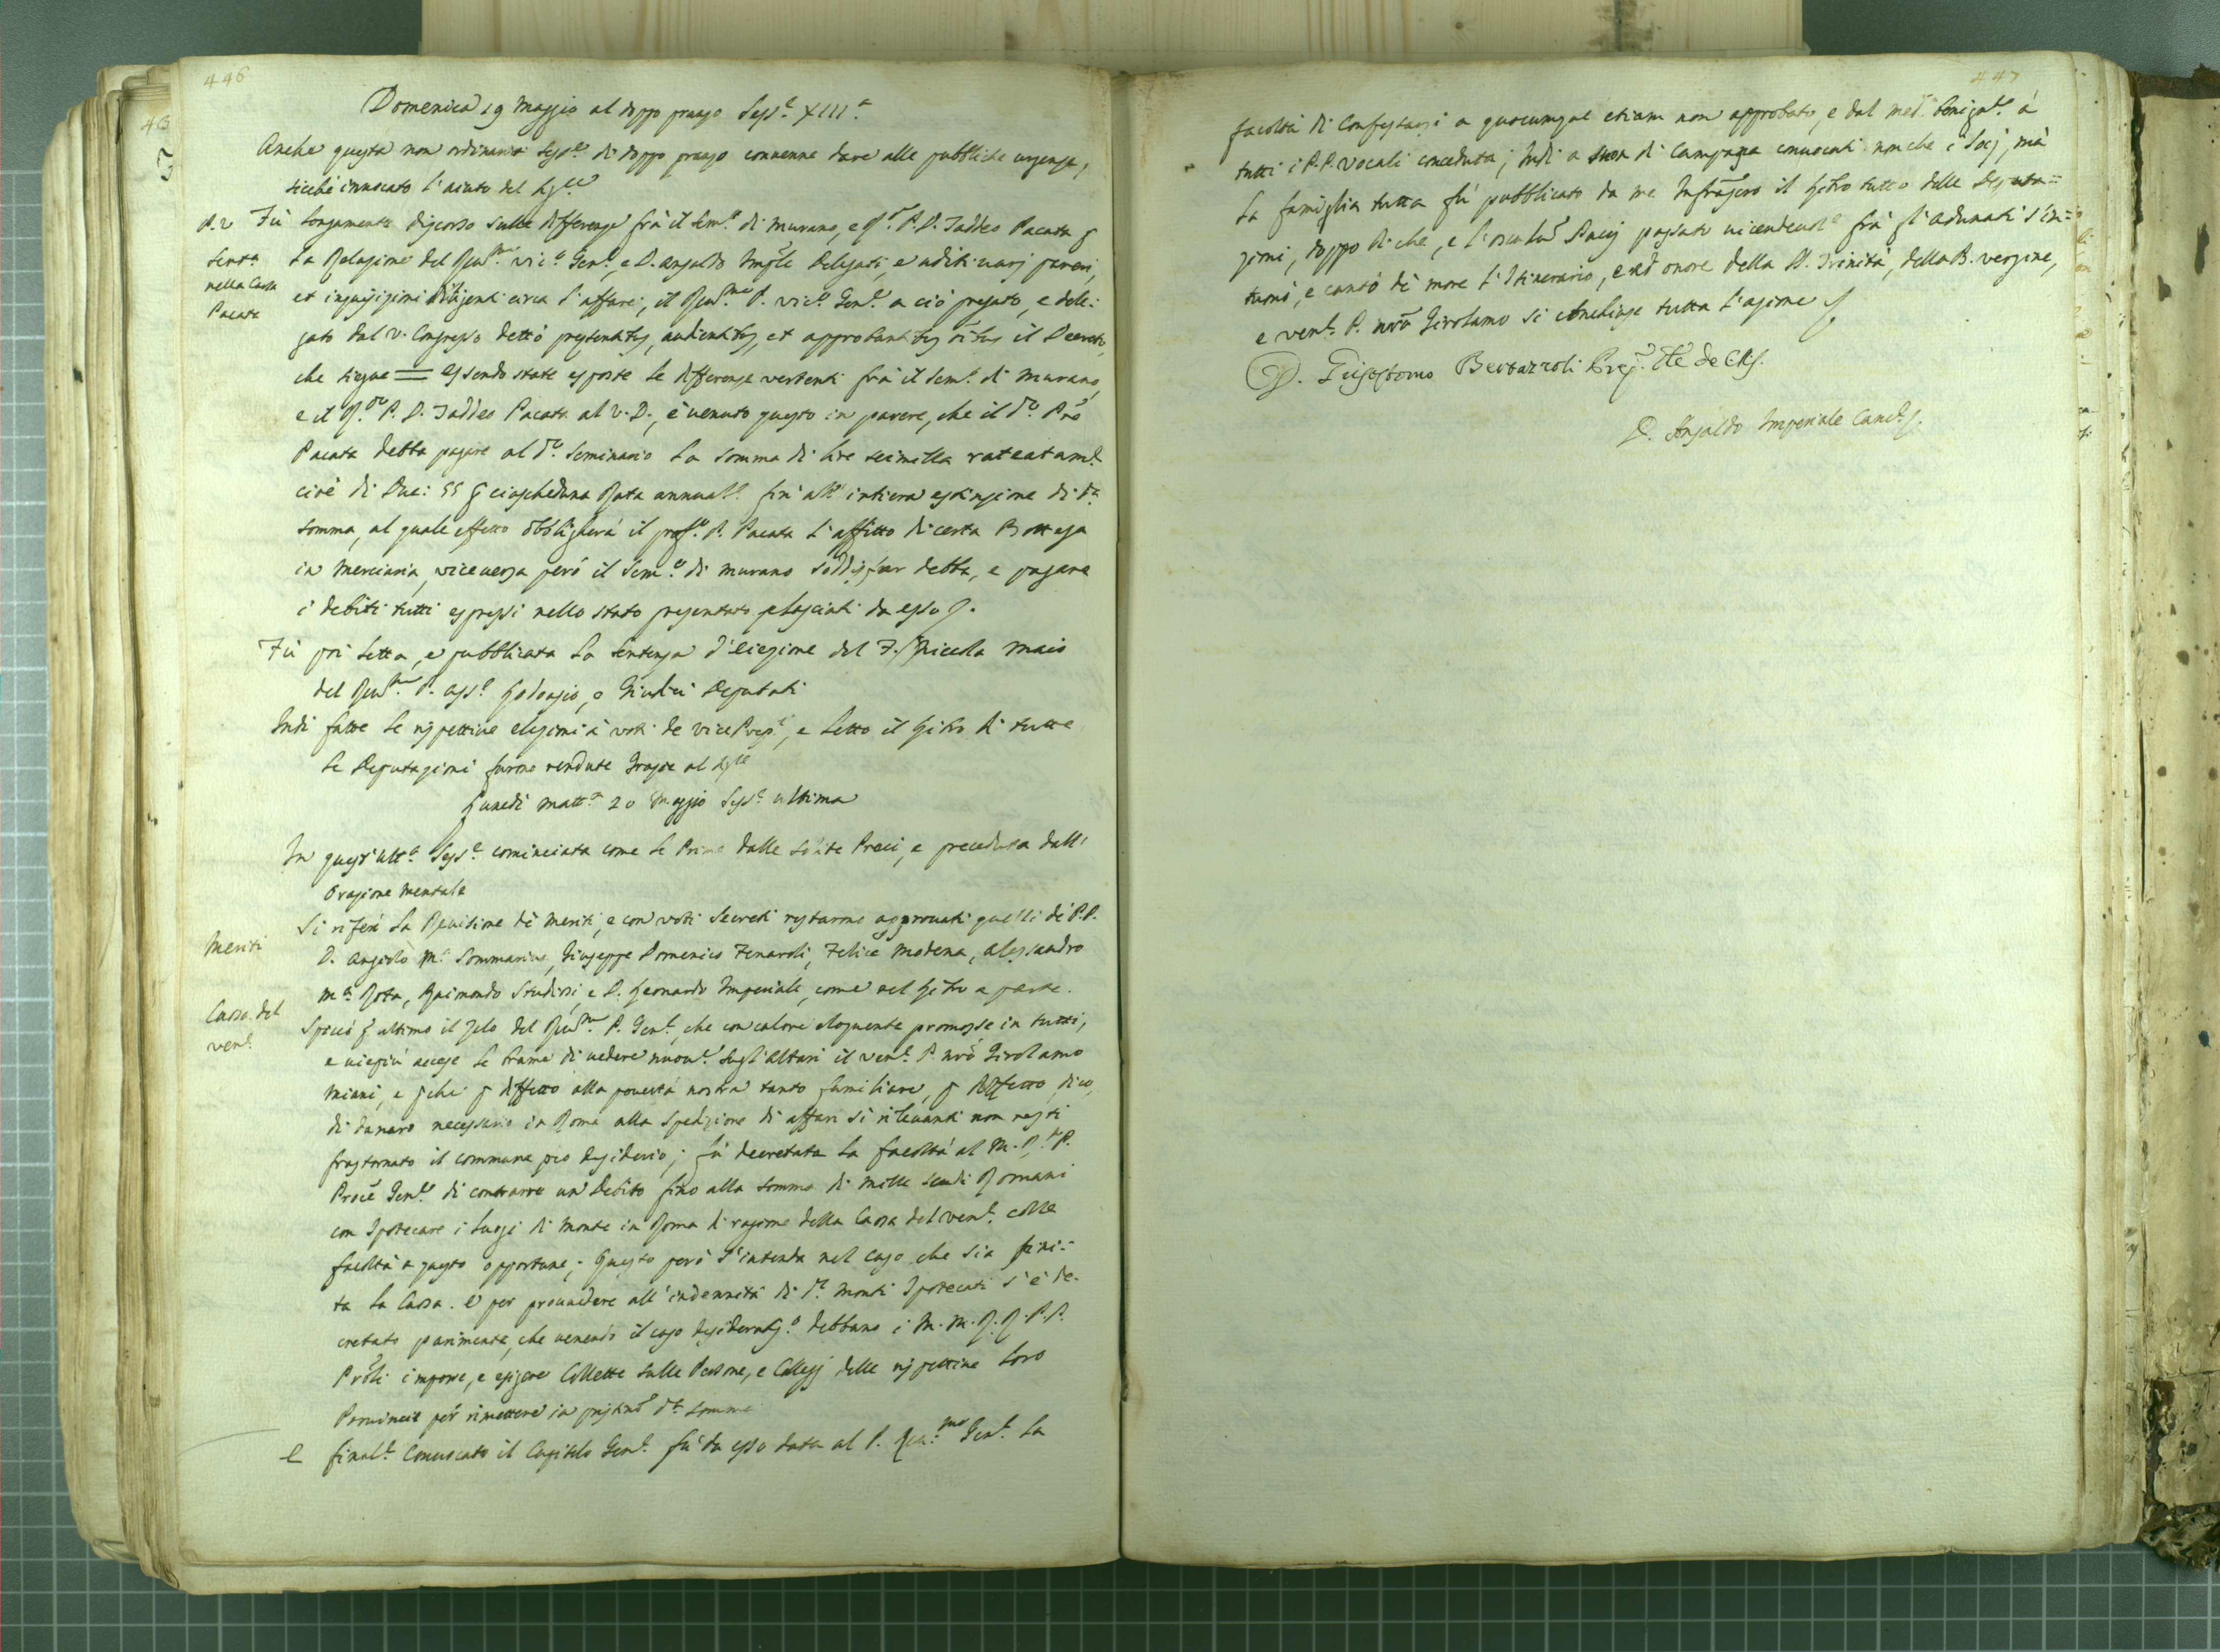 446
Domenica 19 Maggio al doppo pranzo Sess.e XIII.a
Anche questa non ordinaria Sess.e di doppo pranzo convenne dare alle pubbliche urgenze,
sicchè invocato l'aiuto del
Fù longamente discorso sulle differenze frà il Sem.o di Murano, e P. D. Taddeo Pacata
nella Causa
Pacata
la Relazione del Rev.mo Vic.o Gen.e, e D. Ansaldo Delegati, e uditi varj pareri,
et inquisizioni diligenti circa l'affare, il Rev.mo P. Vic.o Gen.e a ciò pregato, e dele:
gato dal V. Congresso dettò et il Decreto,
che siegue = Essendo state esposte le differenze vertenti frà il Sem.o di Murano,
e il P. D. Taddeo Pacata al V. D., è venuto questo in parere, che il d.o Pre
Pacata debba pagare al d.o Seminario la somma di lire seimilla rateatam.e
cioè di Duc: 55 ciascheduna Rata annuale fin' all' intiera estinzione di d.a
somma, al quale effetto obbligherà il P. Pacata l'affitto di certa Bottega
in Merciaria, viceversa però il Sem.o di Murano soddisfar debba, e pagare
i debiti tutti espressi nello stato presentato lasciati da esso
Fù poi letta, e pubblicata la sentenza d'eiezione del F. Nicola Maio
del Rev.mo P. Ass.e e Giudici Deputati
Indi fatte le rispettive elezioni à voti de vice Prep.i, e letto il di tutte
le Deputazioni furono rendute Grazie al
Lunedì matt.a 20 Maggio Sess.e ultima
In quest' ult.a Sess.e cominciata come le Prime dalle solite Preci, e preceduta dall'
Orazione Mentale
Meriti
Si riferì la Revisione dè Meriti, e con voti secreti restarono approvati quelli dè P.P.
D. Angiolo M.a Sommariva, Giuseppe Domenico Fenaroli, Felice Modena, Alessandro
M.a Rota, Raimondo Studiosi, e D. Leonardo Imperiale, come nel a parte.
Causa del
Ven.e
Spiccò ultimo il zelo del Rev.mo P. Gen.e, che con calore eloquente promosse in tutti,
e viepiù accese le brame di vedere sugl'Altari il Ven.e P. nrõ Girolamo
Miani, e diffetto alla povertà nostra tanto familiare, diffetto, dico,
di danaro necessario in Roma alla spedizione di affari sì rilevanti non resti
frastornato il commune pio desiderio; fù decretata la facoltà al M. R. P.
Proc̃e Gen.le di contrarre un Debito fino alla somma di mille scudi Romani
con Ipotecare i luogi di Monte in Roma di ragione della Causa del Ven.e colle
facoltà a questo opportune; Questo però s'intenda nel caso che sia fini:
ta la Causa. E per provvedere all'indennità di d.i Monti Ipotecati s'è de-
cretato parimente, che venendo il caso debbano i M. M. R. R. P. P.
Prõli imporre, e esigere Collette sulle Persone, e Collegj delle rispettive loro
Provincie per rimettere in d.a somma
E final.e Convocato il Capitolo Gen.e fù da esso data al P. Rev.mo Gen.e la
447
facoltà di Confessarsi a quocumque etiam non approbato, e dal med.o benign.e à
tutti i P.P. Vocali conceduta; Indi a suon di Campana convocati non che i Socj, mà
la famiglia tutta fù pubblicato da me Infrascro il tutto delle Deputa=
zioni, doppo di che, e l' Pacis passato vicendevol.e frà gl'Adunati s'in=
tuonò, e cantò dè more l'Itinerario, e ad onore della SS. Trinità, della B. Vergine,
e Ven.e P. nrõ Girolamo si conchiuse tutta l'azione
D. Bertazzoli
D. Ansaldo Imperiale Canc.e